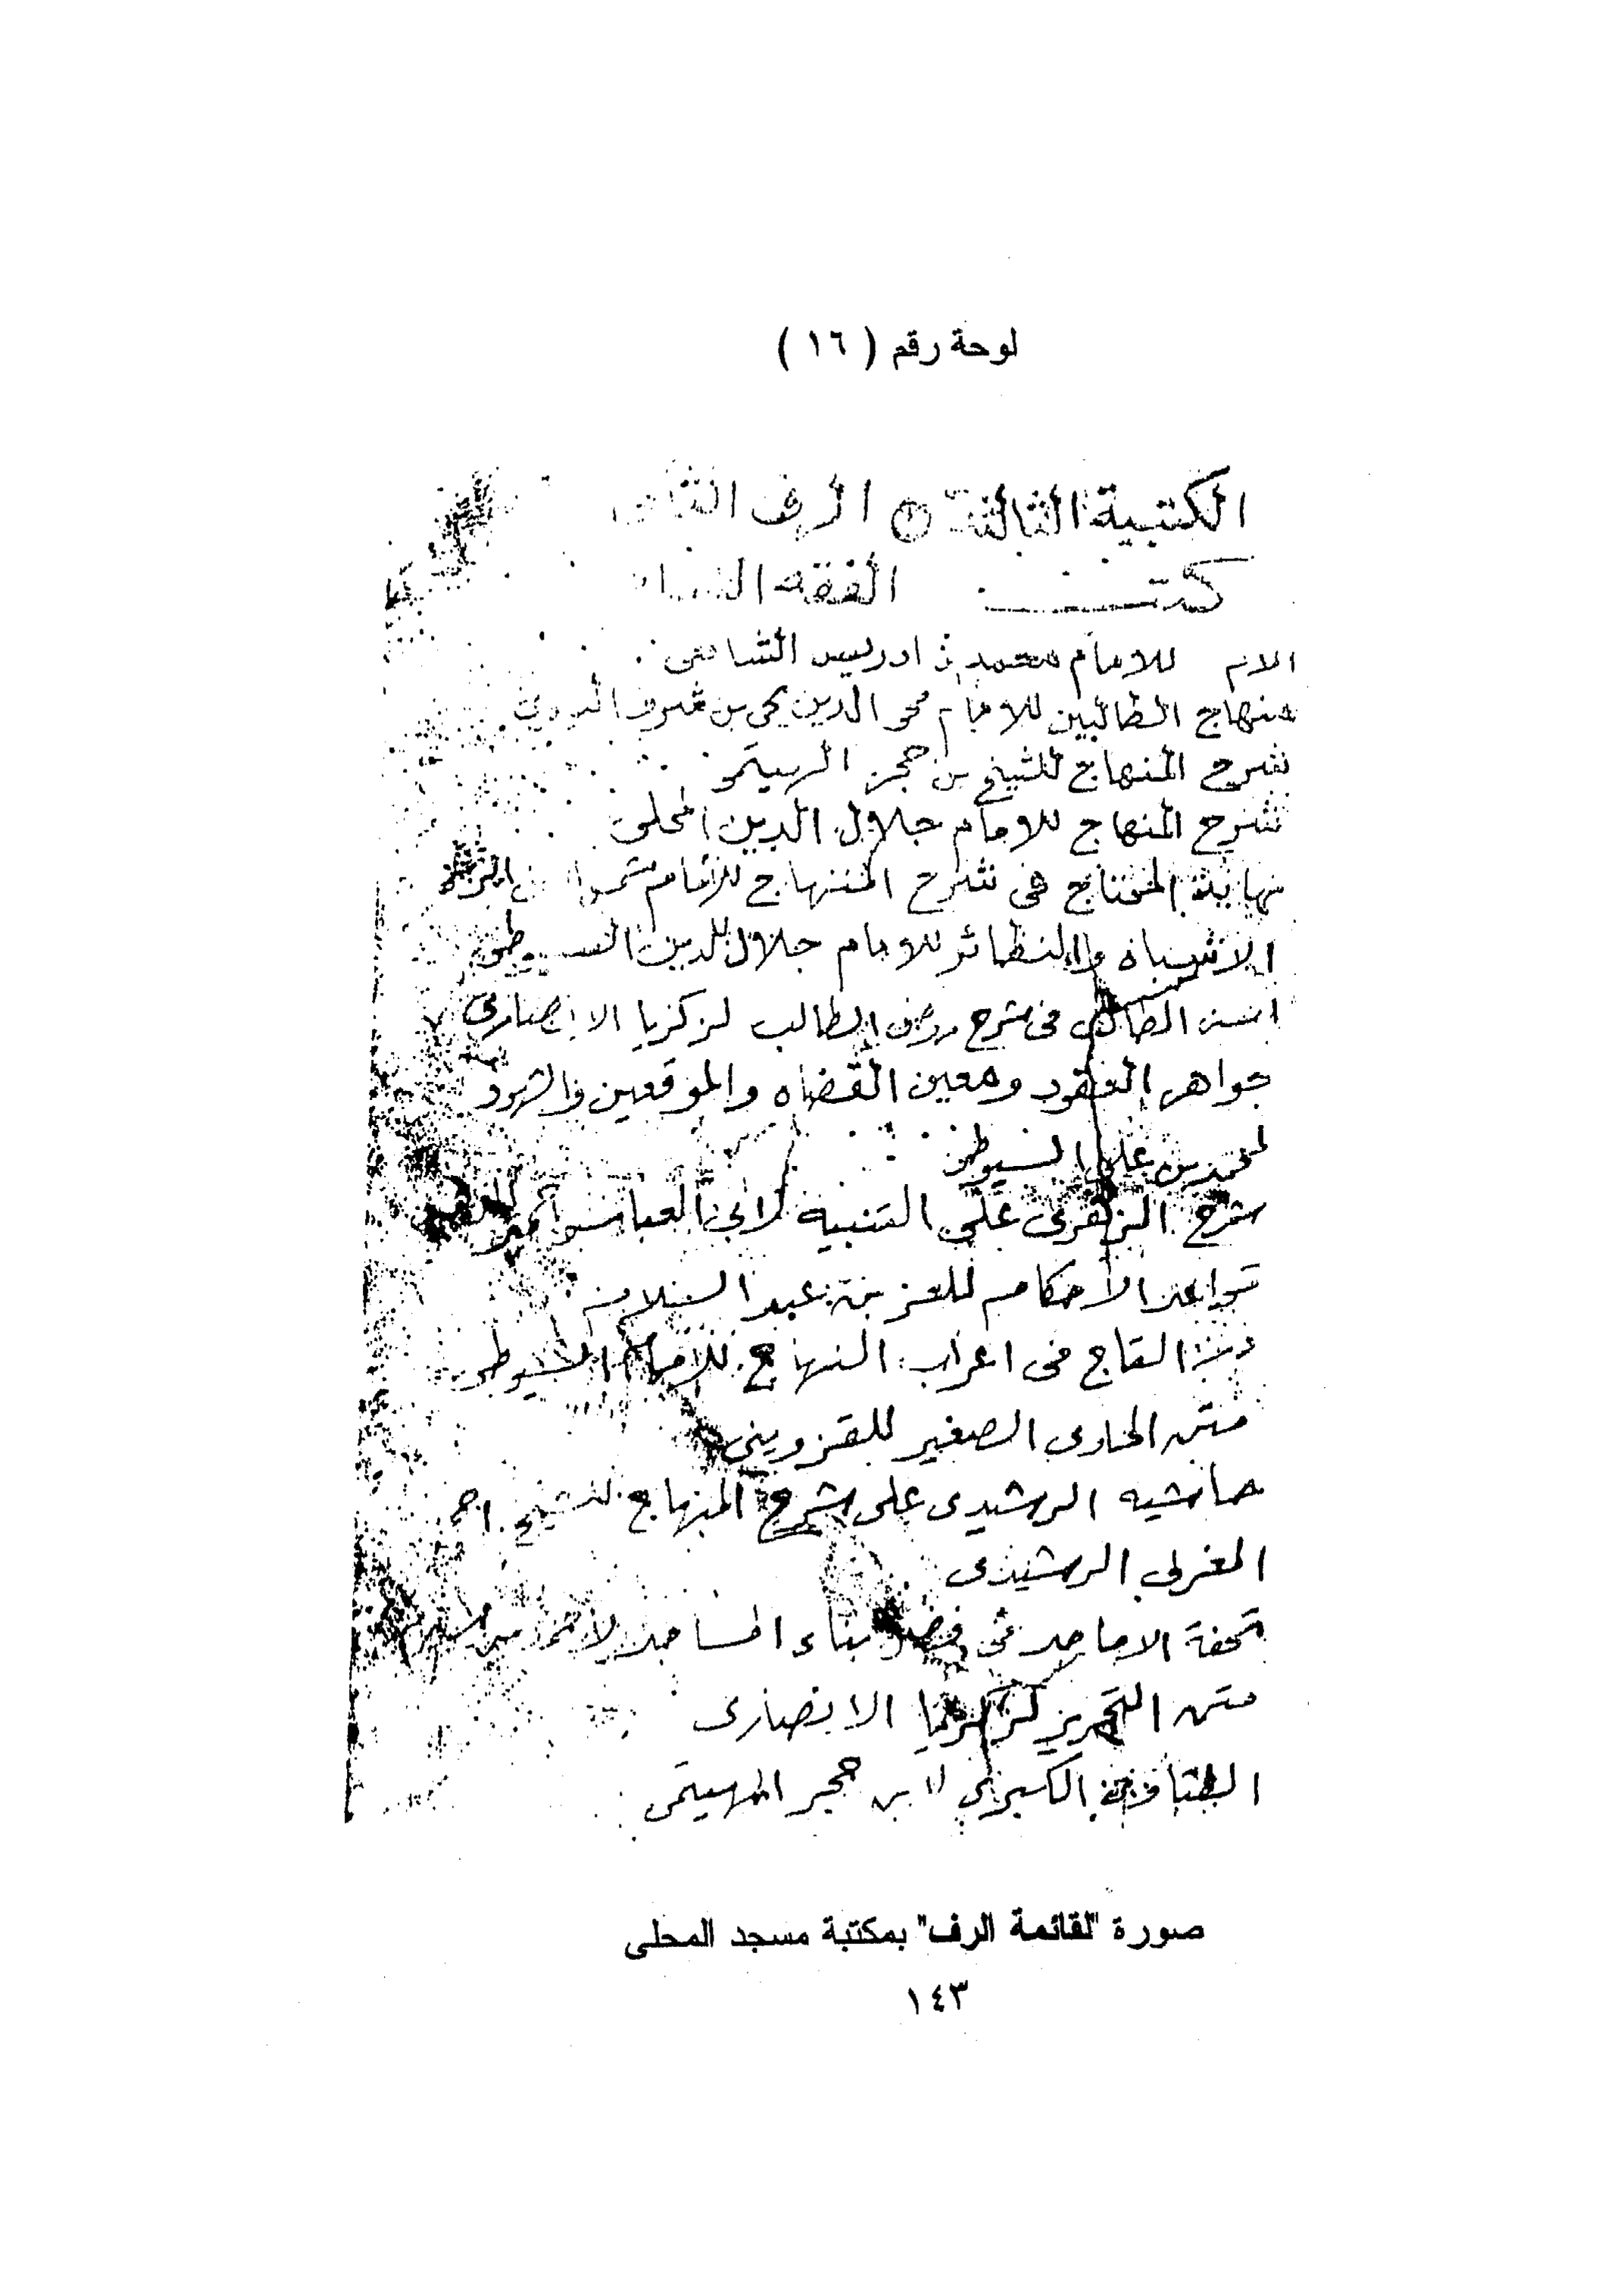 لوحة رقم ( ١٦ )
الكتبية الثالثة الرف
كتب الفقه
الام للامام محمد بن ادريس الشافعى
منهاج الطالبين للامام محى الدين يحى بن شرف النووى
شرح المنهاج للشيخ بن حجر الهيتمى
شرح المنهاج للامام جلال الدين المحلى
نهاية المحتاج فى شرح المنهاج للامام
الاشباه والنظائر للامام جلال الدين السيوطى
الطالب فى شرح روض الطالب لزكريا الانصارى
جواهر العقود ومعين القضاه والموقعين والشهود
لمحمد بن على السيوطى
شرح على التنبيه لابى العباس
قواعد الاحكام للعز بن عبد السلام
التاج فى اعراب المنهاج للامام السيوطى
متن الحاوى الصغير للقزوينى
حاشيه الرشيدى على شرح المنهاج للشيخ احمد
المغربى الرشيدى
تحفة الاماجد فى فضل بناء المساجد لاحمد بن
متن التحرير لزكريا الانصارى
الكبرى لابن حجر الهيتمى
صورة "لقائمة الرف" بمكتبة مسجد المحلى
١٤٣